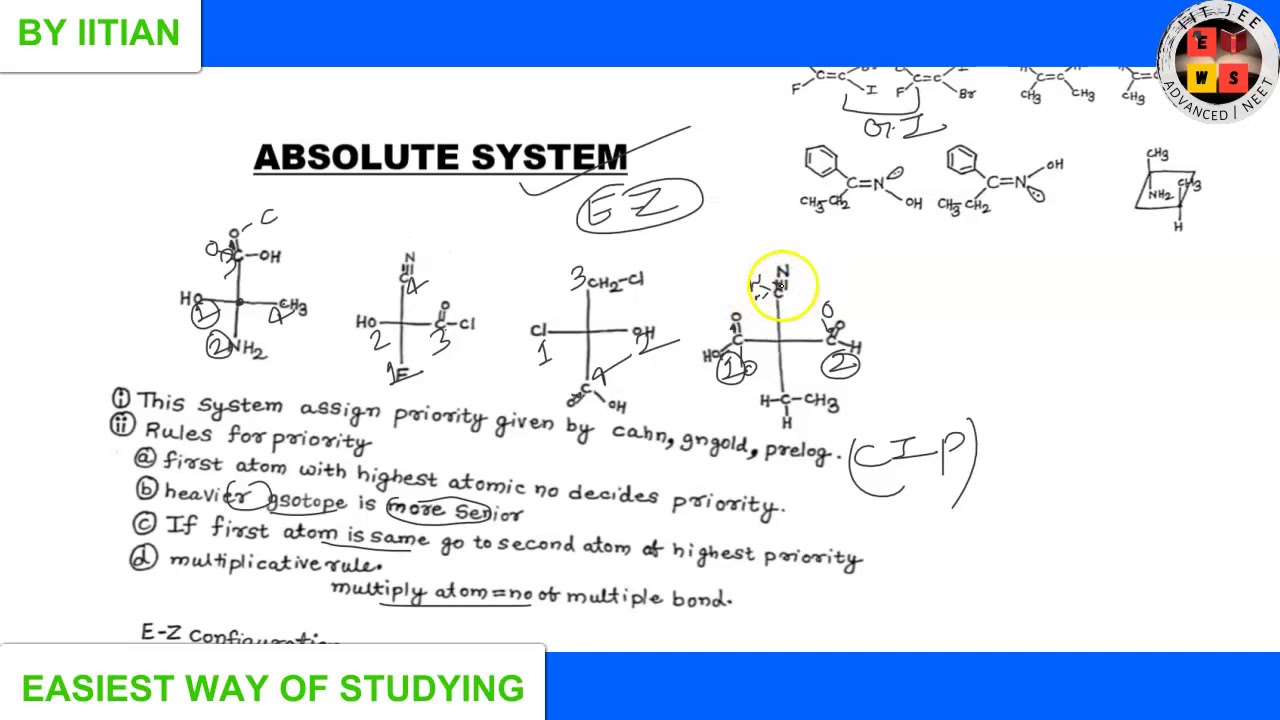 BY IITIAN
IIT JEE
E
W S
ADVANCED | NEET
F C=C I
F C=C Br
CH3 C=C CH3
CH3 C=C
or I
ABSOLUTE SYSTEM
EZ
C=N OH
CH3-CH2
C=N OH
CH3-CH2
CH3
NH2 CH3
H
O C
O C-OH
3
HO CH3
1 4
2 NH2
N
C 4
HO C-Cl
O
2 3
1 F
3 CH2-Cl
Cl OH
1 2
4
C
O OH
N
C
O O O
HO C C H
1 2
H-C-CH3
H
(i) This system assign priority given by cahn, gngold, prelog. (CIP)
(ii) Rules for priority
(a) first atom with highest atomic no decides priority.
(b) heavier gsotope is more senior
(c) If first atom is same go to second atom of highest priority
(d) multiplicative rule.
multiply atom = no of multiple bond.
E-Z configuration
EASIEST WAY OF STUDYING